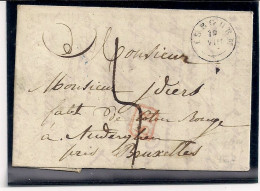 Monsieur
Monsieur Idiers
fabt de coton Rouge
à Auderghem
près Bruxelles
5